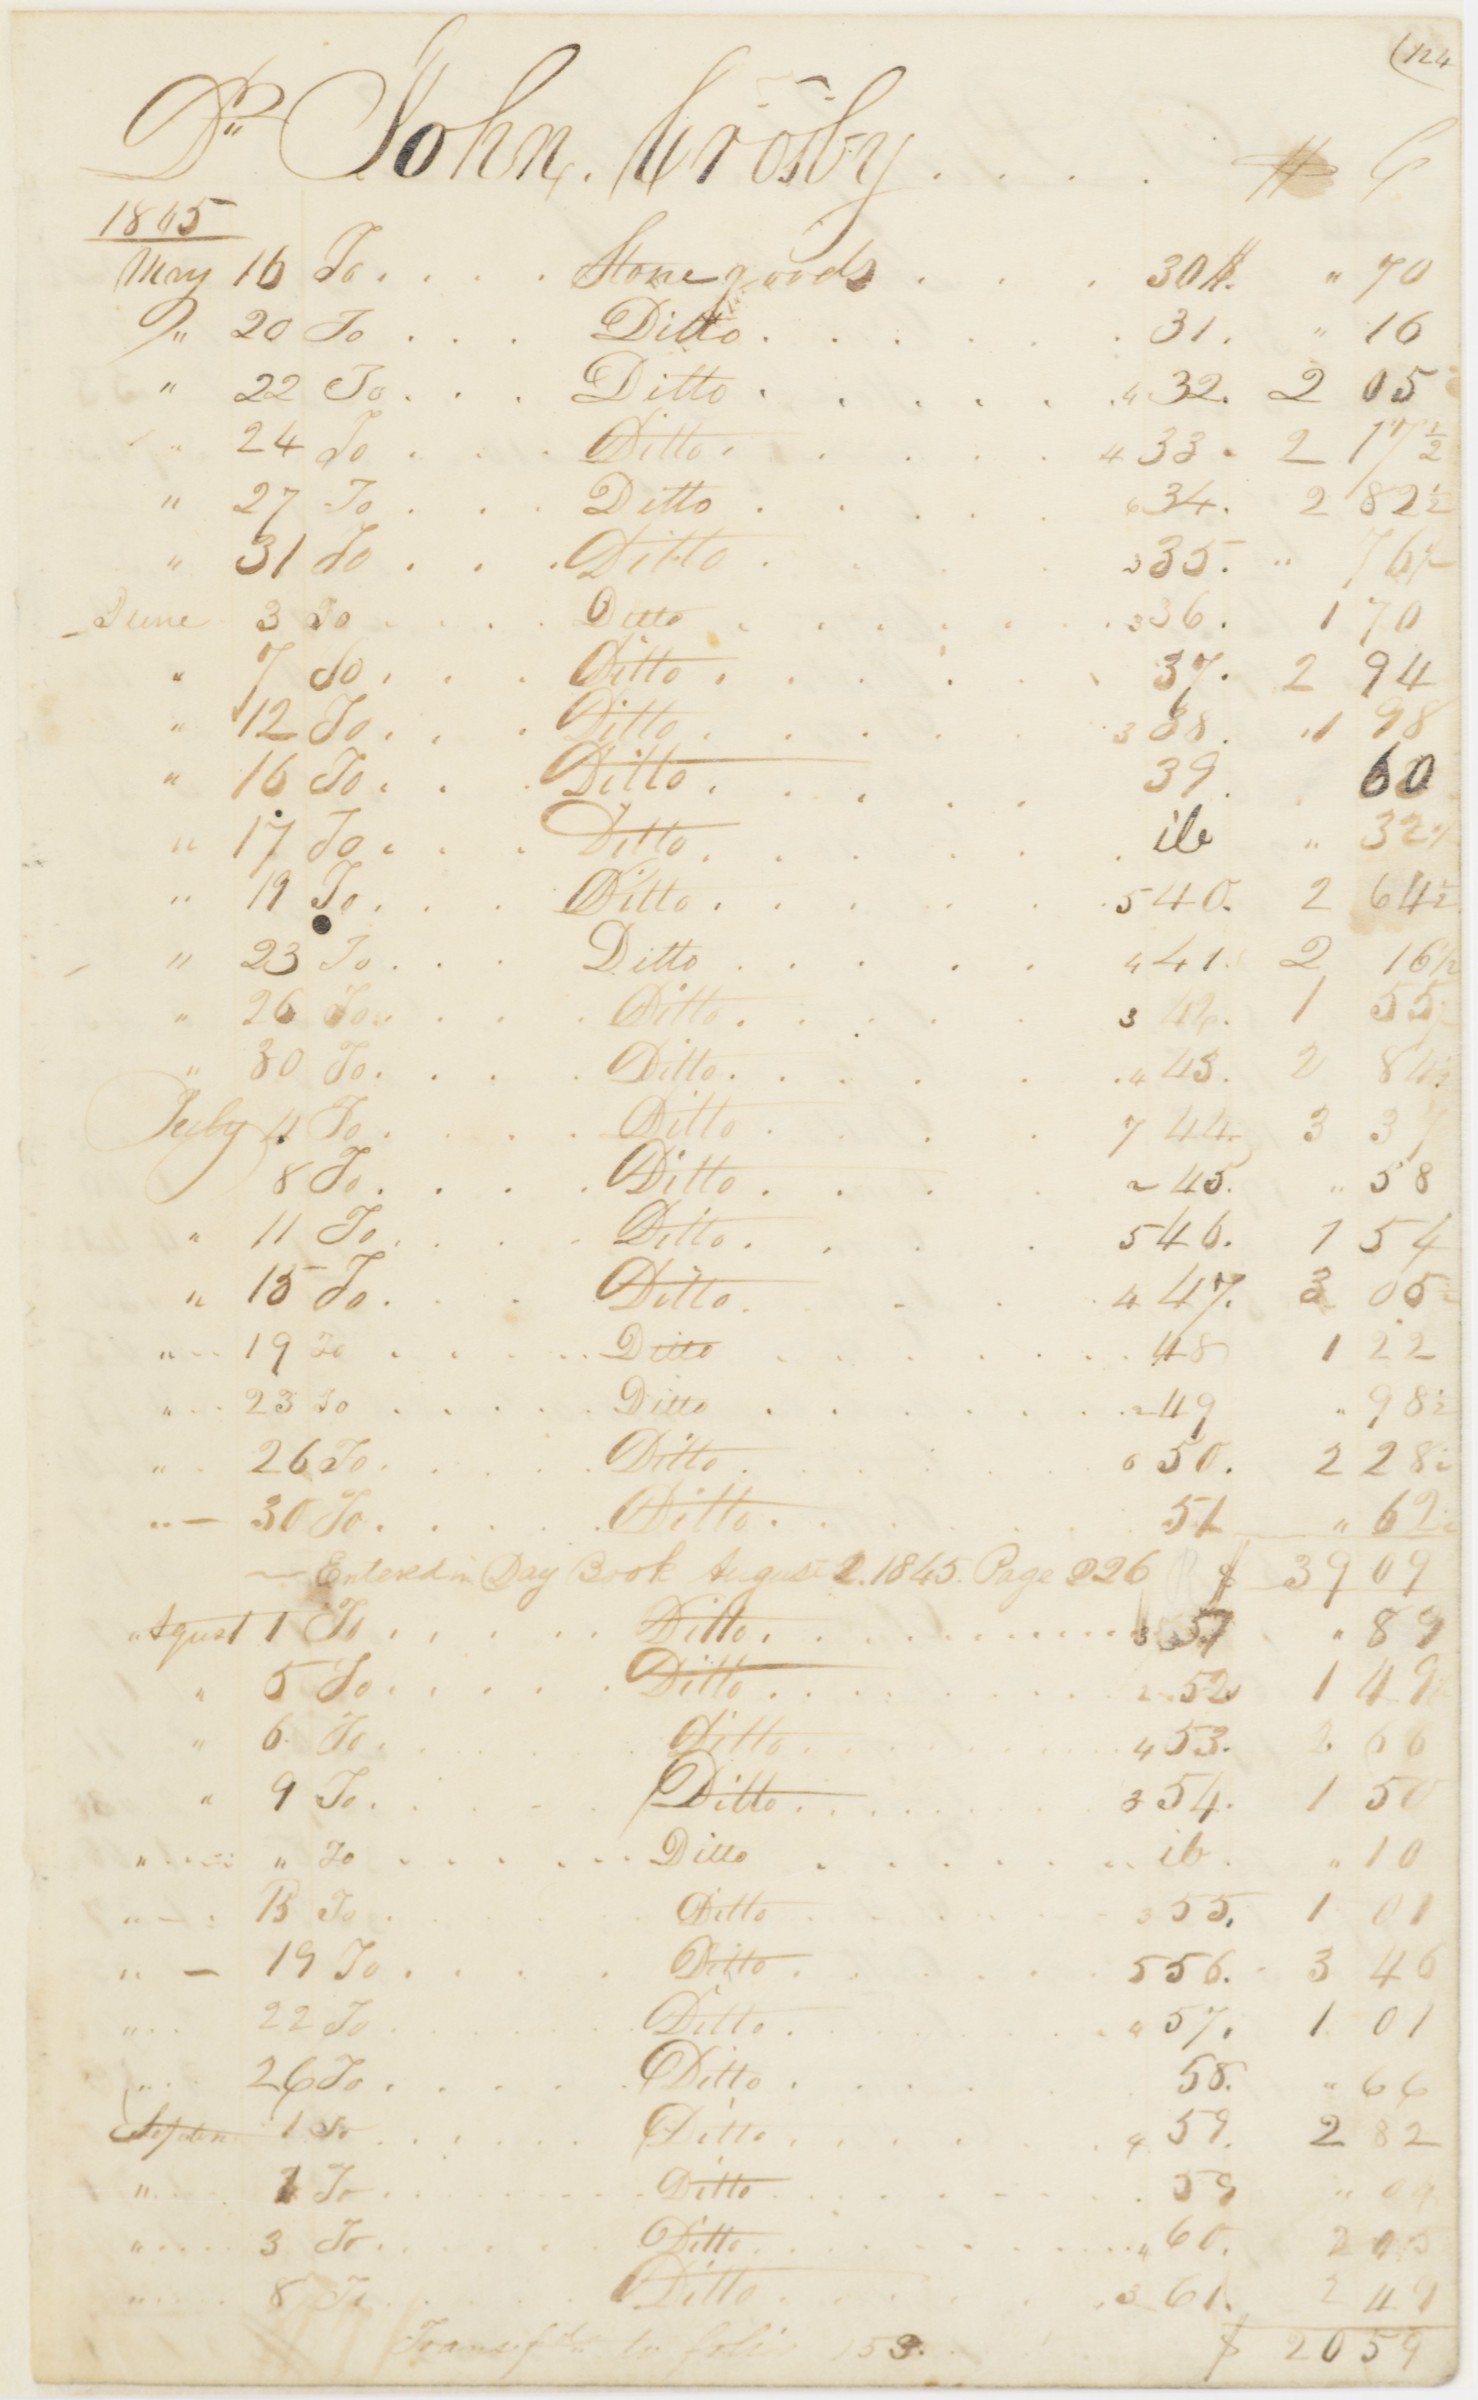 124
Dr John. Crosby . . . . $ C
1845
May 16 To . . . . Stone goods . . . 30 " 70
" 20 To . . . Ditto . . . . . . 31. " 16
" 22 To . . . Ditto . . . . . . 4 32. 2 05
" 24 To . . . Ditto . . . . . . 4 33. 2 17½
" 27 To . . . Ditto . . . . . 6 34. 2 82½
" 31 To . . . Ditto . . . 3 35. " 76½
June 3 To . . . . Ditto . . . . . . . 3 36. 1 70
" 7 To . . . Ditto . . . . . . 37. 2 94
" 12 To . . . Ditto . . . . . . 3 38. 1 98
" 16 To . . . Ditto . . . . . 39. 60
" 17 To . . . Ditto . . . . . . ib " 32½
" 19 To . . . Ditto . . . . . . 5 40. 2 64½
" 23 To . . . Ditto . . . . . 4 41. 2 16½
" 26 To . . . . Ditto . . . . . 3 42. 1 55½
" 30 To . . . . Ditto . . . . . . 4 43. 2 84½
July 4 To . . . . Ditto . . . . 7 44. 3 37
8 To . . . . Ditto . . . . 45. " 58
" 11 To . . . . Ditto . . . . 5 46. 1 54
" 15 To . . . Ditto . . . . 4 47. 3 05½
" 19 To . . . . . Ditto . . . . . . . 48 1 22
" 23 To . . . . . Ditto . . . . . . . 2 49 " 98½
" 26 To . . . . . Ditto . . . . . . 6 50. 2 28½
" 30 To . . . . . Ditto . . . . . 51 " 62½
Entered in Day Book August 2. 1845. Page 226 $ 39 09
" Agust 1 To . . . . . Ditto . . . . . . . . . 3 57 " 89
" 5 To . . . . . Ditto . . . . . . . . 2 52 1 49
" 6 To . . . . Ditto . . . . . . . . . 4 53. 2 66
" 9 To . . . . . Ditto . . . . . . . . 3 54. 1 50
" " To . . . . . . Ditto . . . . . . . ib. " 10
" To . . . . Ditto . . . . . . 3 55. 1 01
" 19 To . . . . Ditto . . . . . . 5 56. 3 46
" 22 To . . . . . Ditto . . . . . . . 4 57. 1 01
" 26 To . . . . . Ditto . . . . . 58. " 66
Septem 1 To . . . . . . Ditto . . . . . . . 4 59. 2 82
" 1 To . . . . . . Ditto . . . . . . . 59 " 09
" 3 To . . . . . . Ditto . . . . . . . . 4 60. 2 05
" 8 To . . . . . Ditto . . . . . . . 3 61. 2 49
to folio 153. $ 20 59